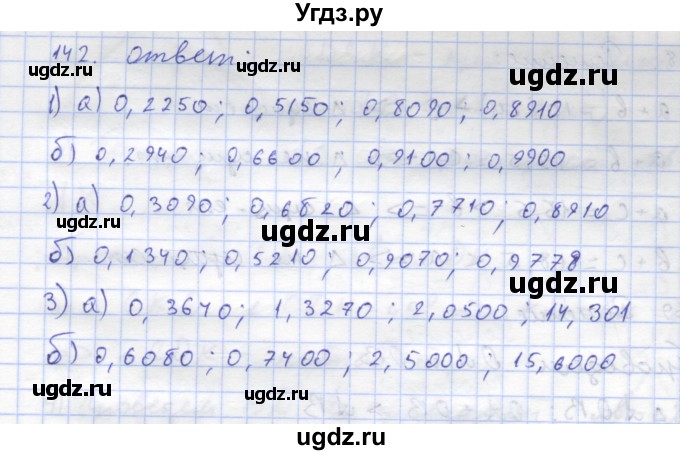 Угдз.ру
142. Ответ:
1) а) 0,2250; 0,5150; 0,8090; 0,8910
б) 0,2940; 0,6600; 0,9100; 0,9900
2) а) 0,3090; 0,6820; 0,7710; 0,8910
б) 0,1340; 0,5210; 0,9070; 0,9778
3) а) 0,3640; 1,3270; 2,0500; 14,301
б) 0,6080; 0,7400; 2,5000; 15,6000
ugdz.ru
ugdz.ru
ugdz.ru
ugdz.ru
ugdz.ru
ugdz.ru
ugdz.ru
ugdz.ru
ugdz.ru
ugdz.ru
ugdz.ru
ugdz.ru
ugdz.ru
ugdz.ru